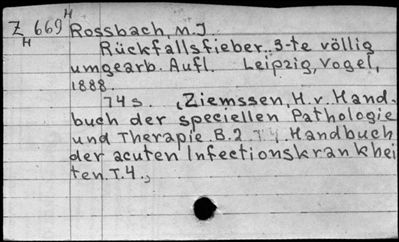 Z H 669 H Rossbach, M.J.
Rückfallsfieber. 3-te völlig
umgearb. Aufl. Leipzig, Vogel,
1888.
74 s. (Ziemssen, H. v. Hand-
buch der speciellen Pathologie
und Therapie. B. 2 T 4 Handbuch
der acuten Infectionskrankhei
ten. T. 4.)